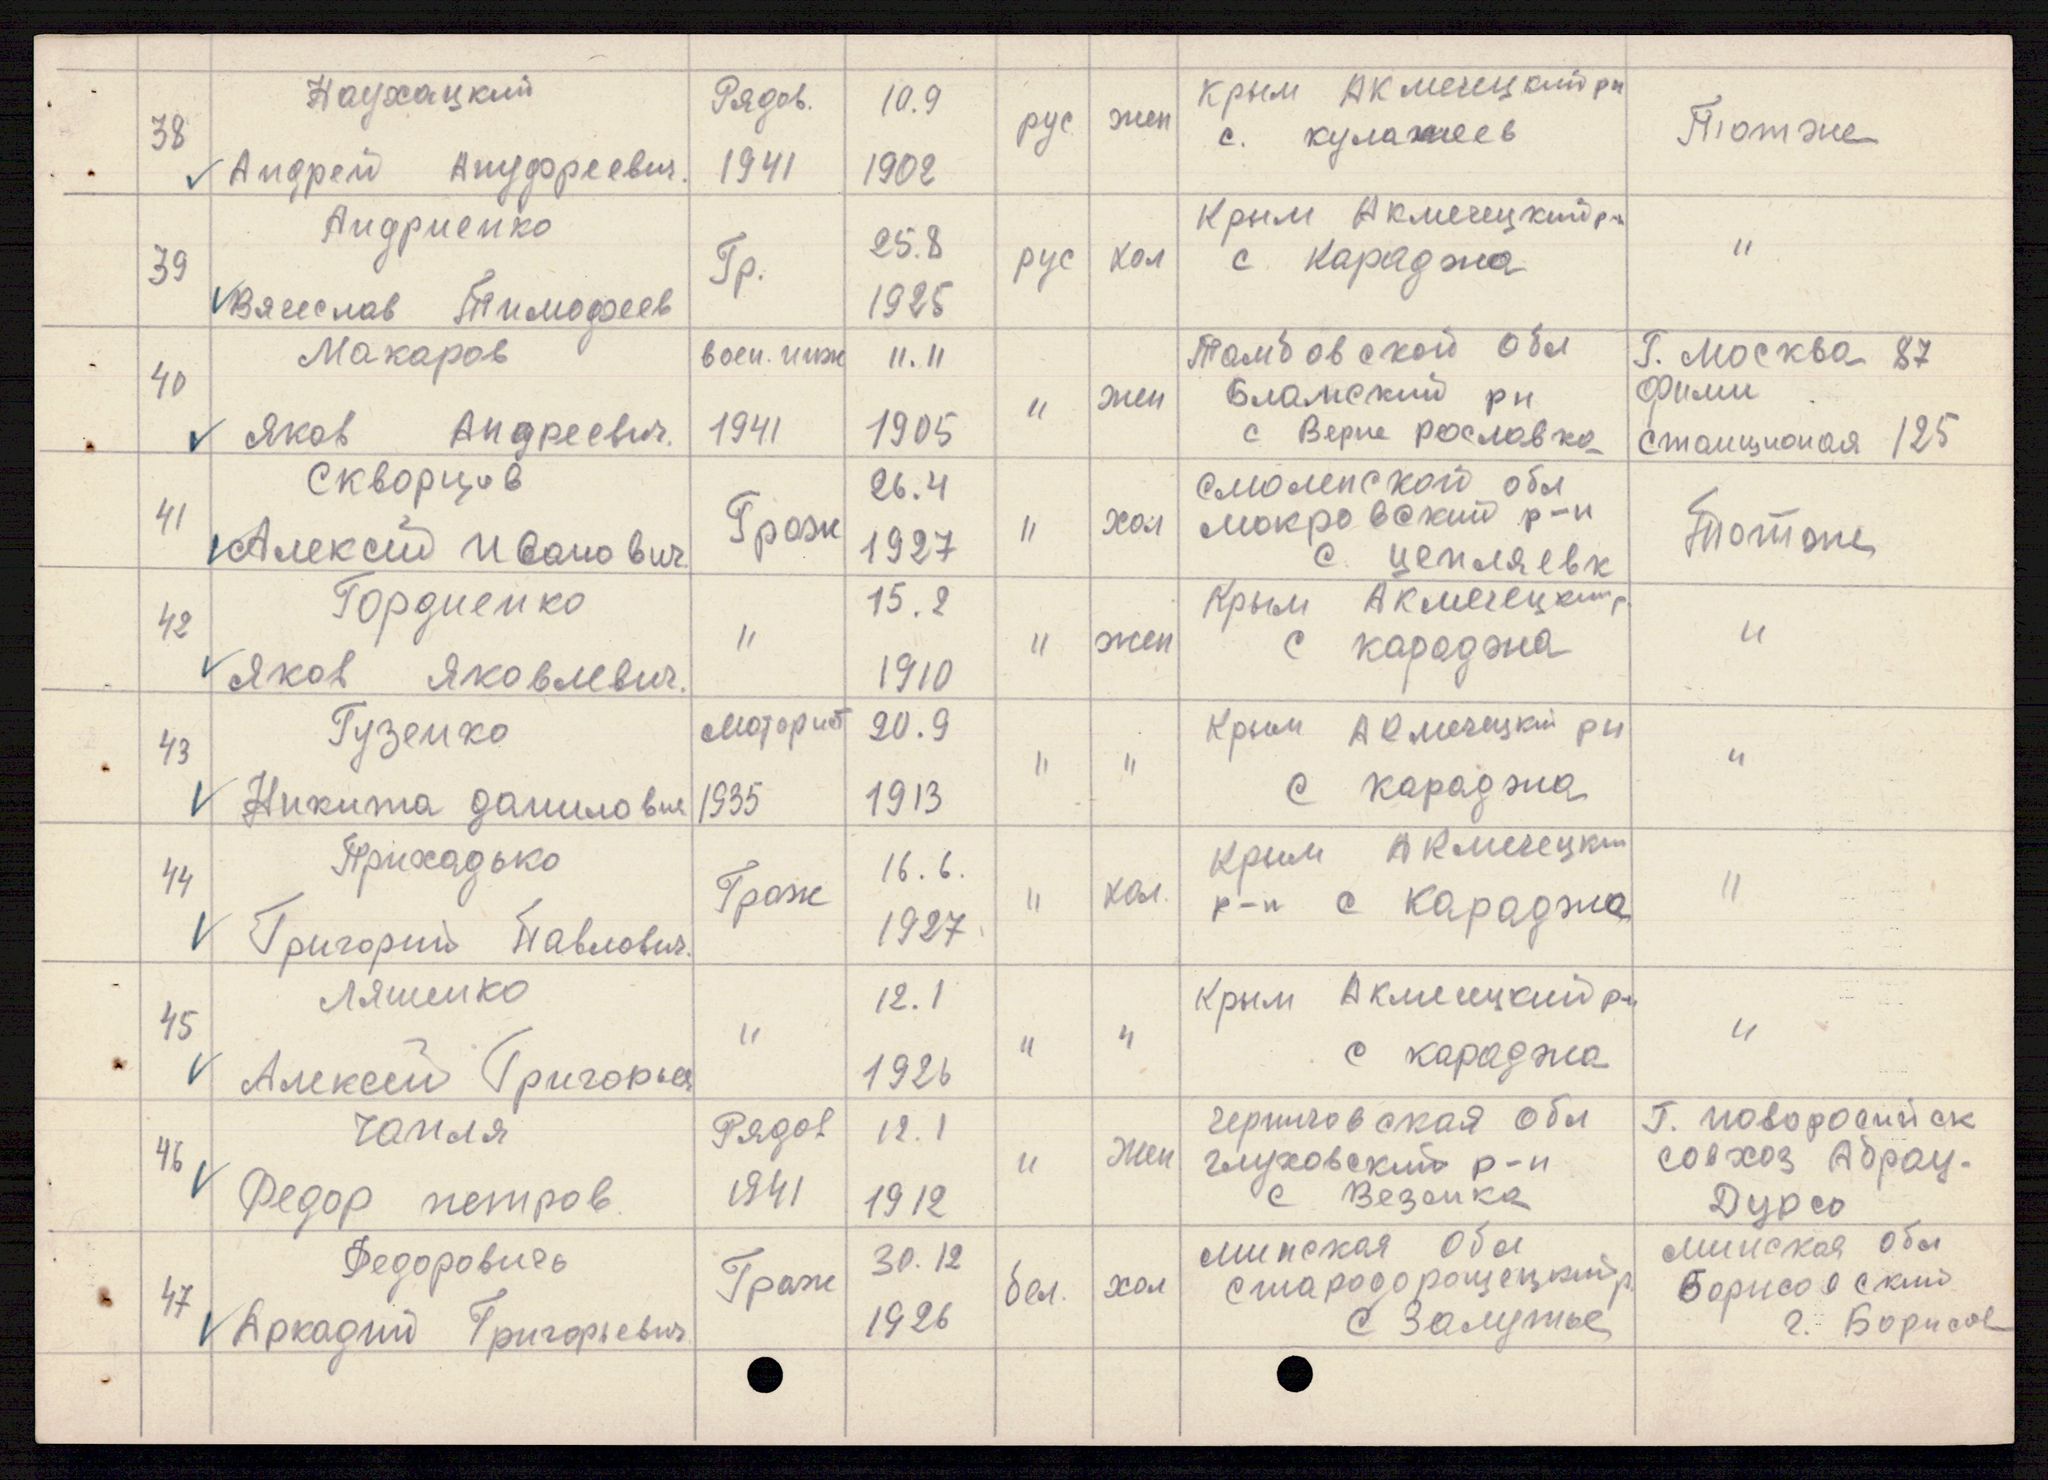 38 Наухацкий Рядов. 10.9 рус жен Крым Акмечецкий рн Тотже
Андрей Ануфреевич. 1941 1902 с. кулатеев
39 Андриенко Гр. 25.8 рус хол Крым Акмечецкий р-н "
Вячеслав Тимофеев 1925 с Караджа
40 Макаров воен. инж 11.11 " жен Тамбовской Обл Г. Москва 87
Бламский рн Фили
Яков Андреевич. 1941 1905 с Верне рославка Станционая 125
41 Скворцов Граж 26.4 " хол Смоленской обл Тотже
Мокровский р-н
Алексей Иванович. 1927 с. цепляевк
42 Гордиенко " 15.2 " жен Крым Акмечецкий р. "
Яков Яковлевич. 1910 с караджа
43 Гузенко Моторист 20.9 " " Крым Акмечецкий рн "
Никита данилович 1935 1913 с караджа
44 Прихадько Граж 16.6. " хол. Крым Акмечецкий "
Григорий Павлович. 1927 р-н с Караджа
45 Ляшенко " 12.1 " " Крым Акмечецкий р-н "
Алексей Григорьев 1926 с караджа
46 Чапля Рядов 12.1 " Жен Черниговская Обл Г. новоросийск
глуховский р-н совхоз Абрау-
Федор петров 1941 1912 с Везенка Дурсо
47 Федоровичь Граж 30.12 бел. хол Минская Обл Минская Обл
Стародорощецкий р. Борисовский
Аркадий Григорьевич. 1926 с Залужье г. Борисов